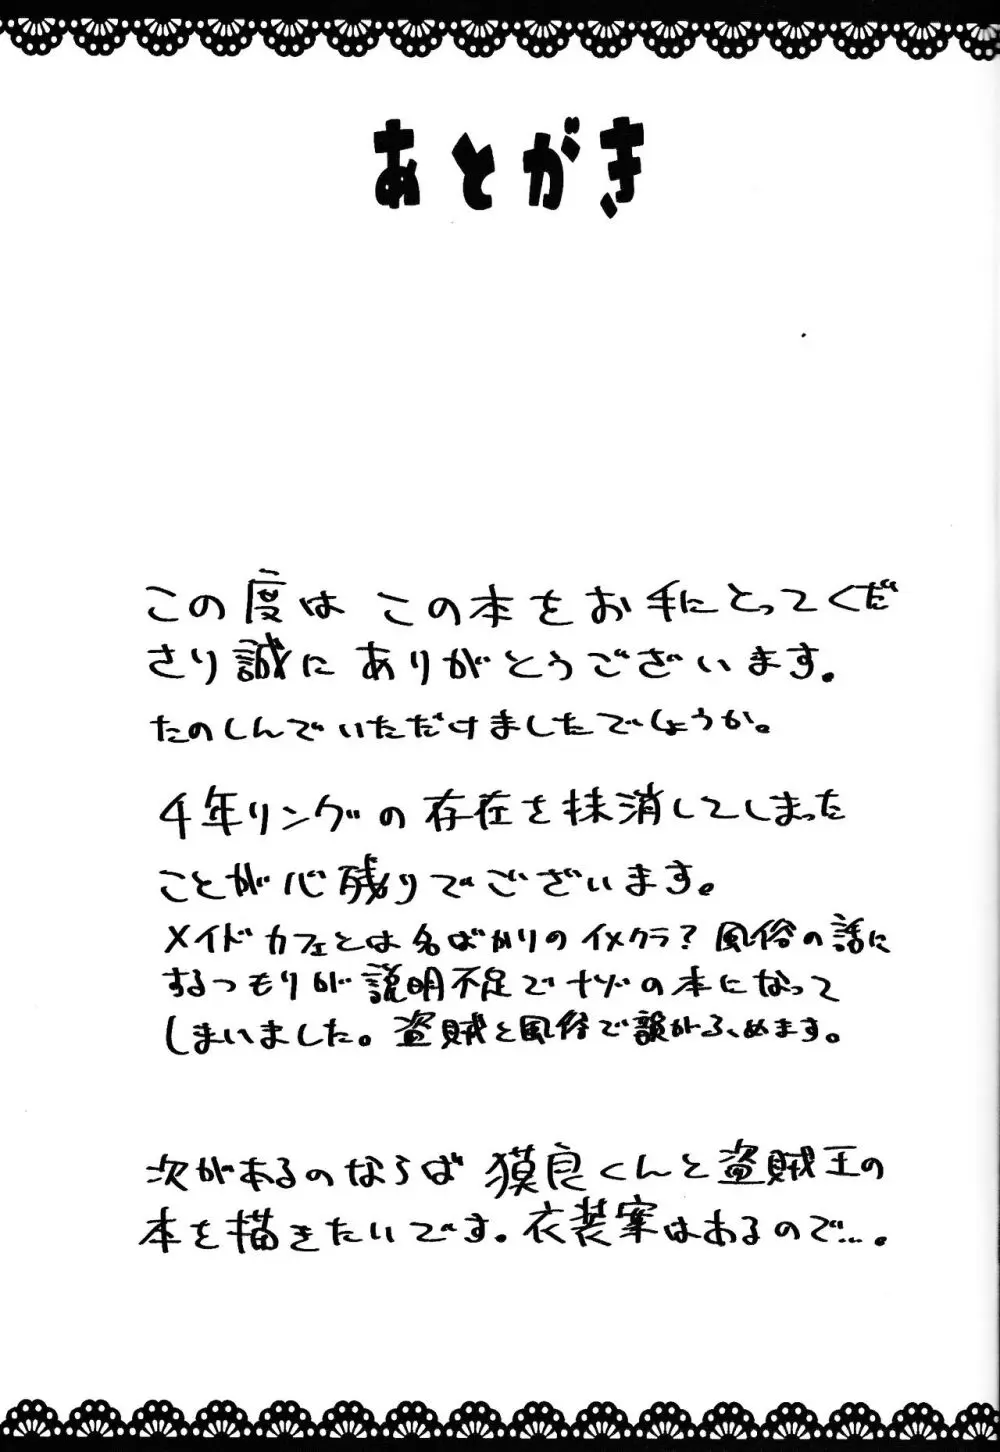 あとがき
この度は この本をお手にとってくだ
さり誠にありがとうございます。
たのしんでいただけましたでしょうか。
千年リングの存在を抹消してしまった
ことが心残りでございます。
メイドカフェとは名ばかりのイメクラ？風俗の話に
するつもりが説明不足でナゾの本になって
しまいました。盗賊と風俗で韻がふめます。
次があるのならば 獏良くんと盗賊王の
本を描きたいです。衣装案はあるので…。